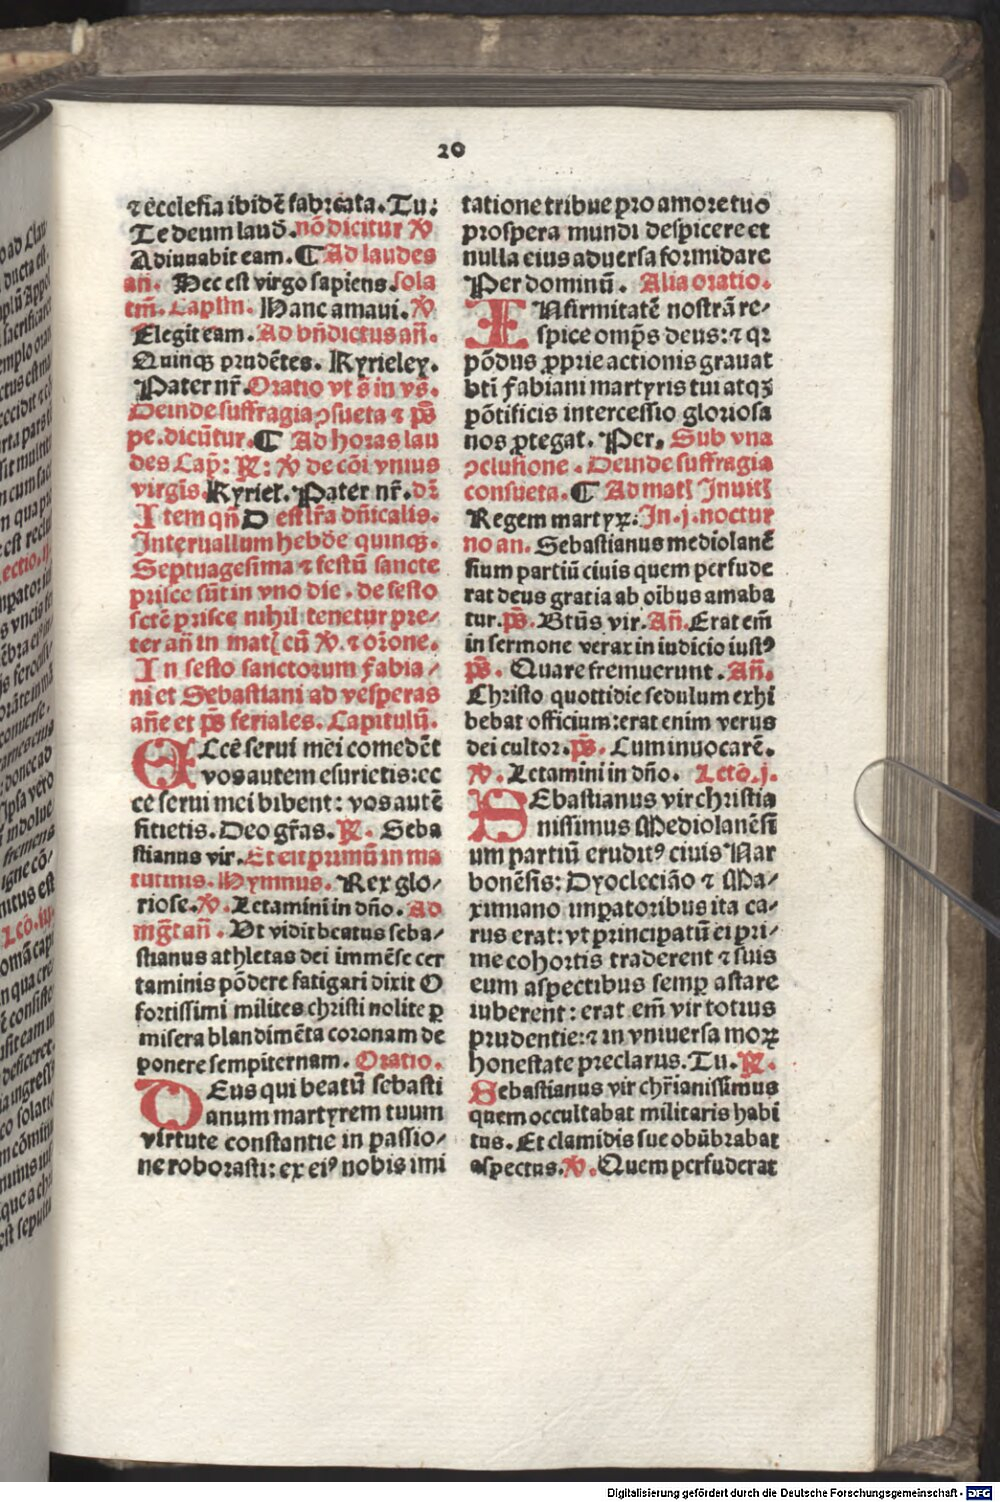 20
⁊ ecclesia ibidē fabricata. Tu:
Te deum laud̄. nō dicitur ℣
Adiuuabit eam. ¶ Ad laudes
an̄. Hec est virgo sapiens. sola
tm̄. Caplm̄. Hanc amaui. ℣
Elegit eam. Ad bn̄dictus an̄.
Quinqꝫ prudētes. Kyrieley.
Pater nr̄. Oratio vt s̄ in vs̄.
Deinde suffragia ꝯsueta ⁊ ps̄
pe. dicūtur. ¶ Ad horas lau
des Cap̄: ℟: ℣ de cōi vnius
virgīs. Kyriel. Pater nr̄. dr̄
Item qn̄ D est lr̄a dn̄icalis.
Interuallum hebde quinqꝫ.
Septuagesima ⁊ festū sancte
prisce sūt in vno die. de festo
scte prisce nihil tenetur pre-
ter an̄ in mat̄ cū ℣. ⁊ or̄one.
In festo sanctorum fabia/
ni et Sebastiani ad vesperas
an̄e et ps̄ feriales. Capitulū.
ECce serui mei comedēt
vos autem esurietis: ec
ce serui mei bibent: vos autē
sitietis. Deo gr̄as. ℟. Seba
stianus vir. Et est primū in ma
tutinis. Hymnus. Rex glo/
riose. ℣. Letamini in dn̄o. Ad
mḡt an̄. Vt vidit beatus seba/
stianus athletas dei immēse cer
taminis pōdere fatigari dixit O
fortissimi milites christi nolite ꝑ
misera blandimēta coronam de
ponere sempiternam. Oratio.
DEus qui beatū sebasti
anum martyrem tuum
virtute constantie in passio/
ne roborasti: ex eiꝰ nobis imi
tatione tribue pro amore tuo
prospera mundi despicere et
nulla eius aduersa formidare
Per dominū. Alia oratio.
INfirmitatē nostrā re/
spice omp̄s deus: ⁊ qꝛ
pōdus ꝓprie actionis grauat
bt̄i fabiani martyris tui atqꝫ
pōtificis intercessio gloriosa
nos ꝓtegat. Per. Sub vna
ꝯclusione. Deinde suffragia
consueta. ¶ Ad matꝭ Inuitꝭ
Regem martyꝝ. In .j. noctur
no an. Sebastianus mediolanē
sium partiū ciuis quem perfude
rat deus gratia ab oībus amaba
tur. ps̄. Bt̄us vir. An̄. Erat em̄
in sermone verax in iudicio iustꝰ
ps̄. Quare fremuerunt. An̄.
Christo quottidie sedulum exhi
bebat officium: erat enim verus
dei cultor. ps̄. Cum inuocarē.
℣. Letamini in dn̄o. Lctō. j.
SEbastianus vir christia
nissimus Mediolanēsi
um partiū eruditꝰ ciuis Nar
bonēsis: Dyocleciāo ⁊ Ma/
ximiano impatoribus ita ca/
rus erat: vt principatū ei pri/
me cohortis traderent ⁊ suis
eum aspectibus semꝑ astare
iuberent: erat em̄ vir totius
prudentie: ⁊ in vniuersa moꝝ
honestate preclarus. Tu. ℟.
Sebastianus vir chr̄ianissimus
quem occultabat militaris habi
tus. Et clamidis sue obūbrabat
aspectus. ℣. Quem perfuderat
Digitalisierung gefördert durch die Deutsche Forschungsgemeinschaft - DFG